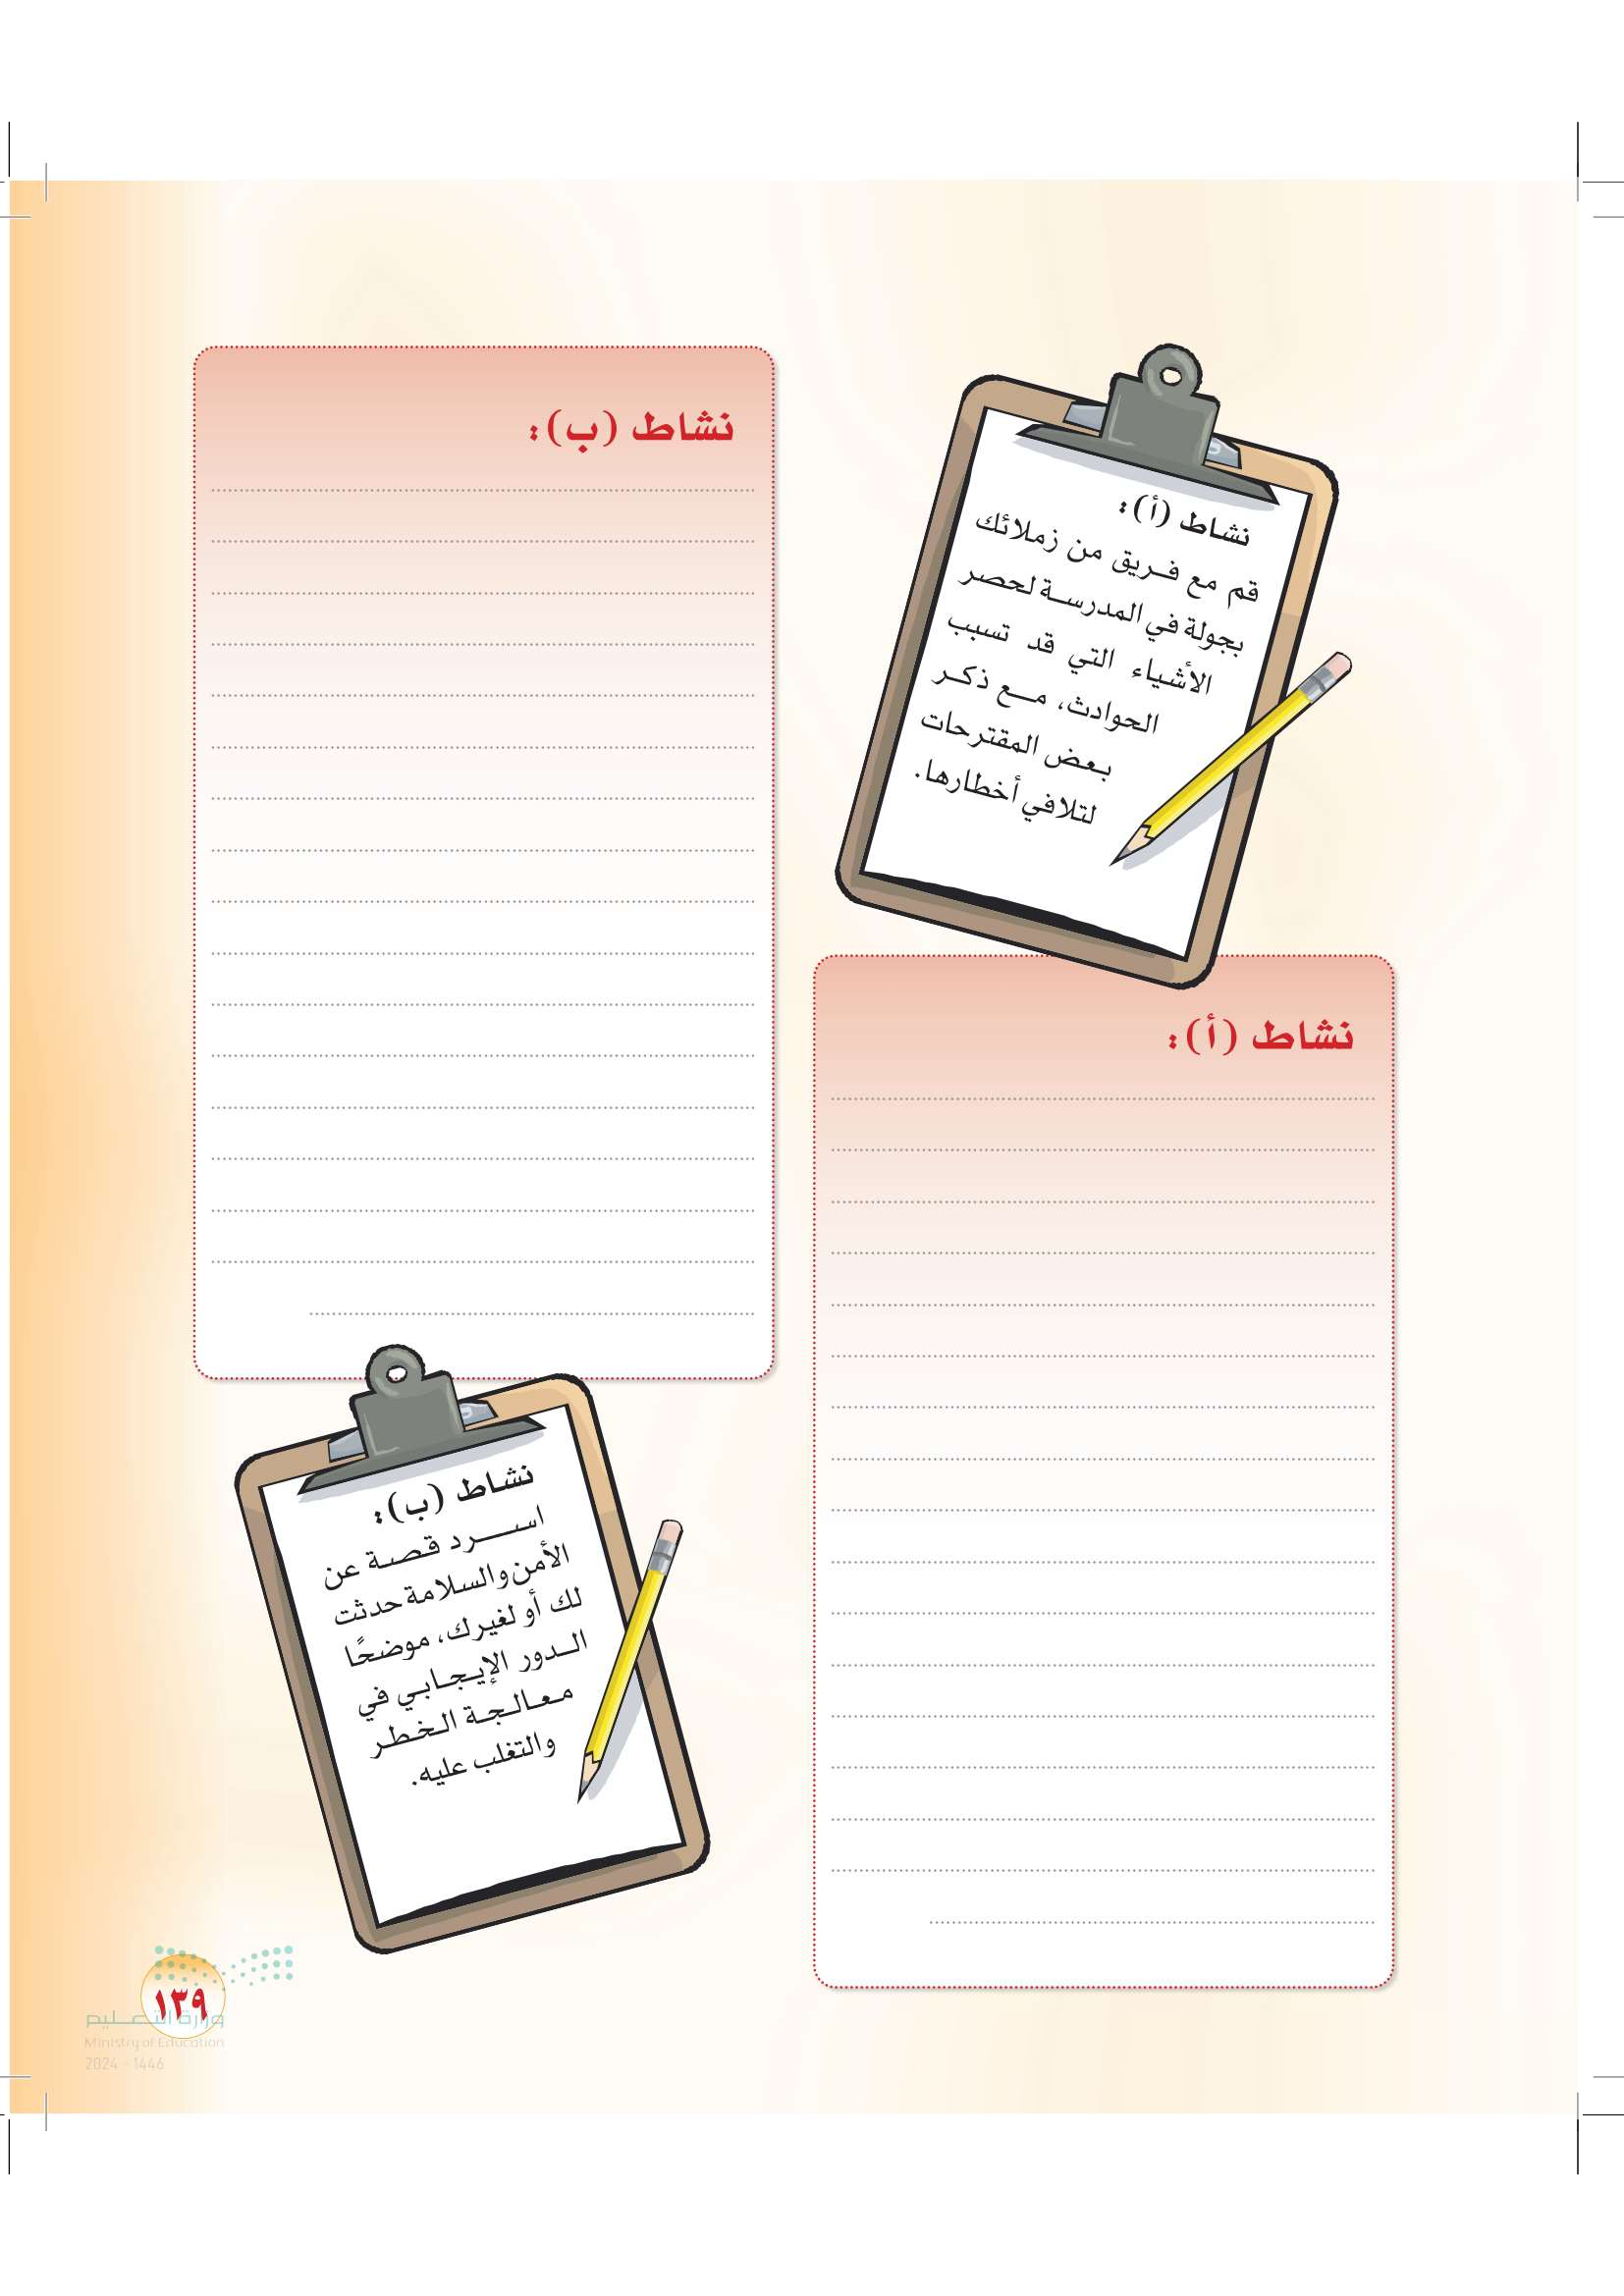 نشاط (أ):
قم مع فريق من زملائك
بجولة في المدرسة لحصر
الأشياء التي قد تسبب
الحوادث، مع ذكر
بعض المقترحات
لتلافي أخطارها.
نشاط (أ):
نشاط (ب):
نشاط (ب):
اسرد قصة عن
الأمن والسلامة حدثت
لك أو لغيرك، موضحًا
الدور الإيجابي في
معالجة الخطر
والتغلب عليه.
١٣٩
وزارة التعليم
Ministry of Education
2024 - 1446